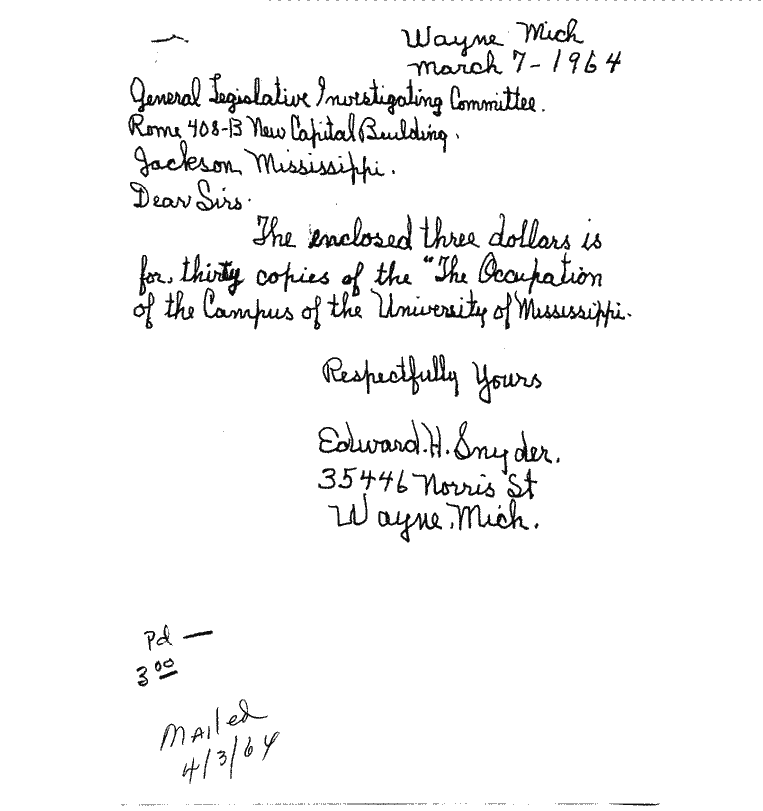 Wayne Mich
March 7-1964
General Legislative Investigating Committee.
Rome 408-B New Capital Building.
Jackson, Mississippi.
Dear Sirs.
The enclosed three dollars is
for, thirty copies of the "The Occupation
of the Campus of the University of Mississippi.
Respectfully Yours
Edward.H.Snyder.
35446 Norris St
Wayne, Mich.
Pd —
3 00
Mailed
4/3/64